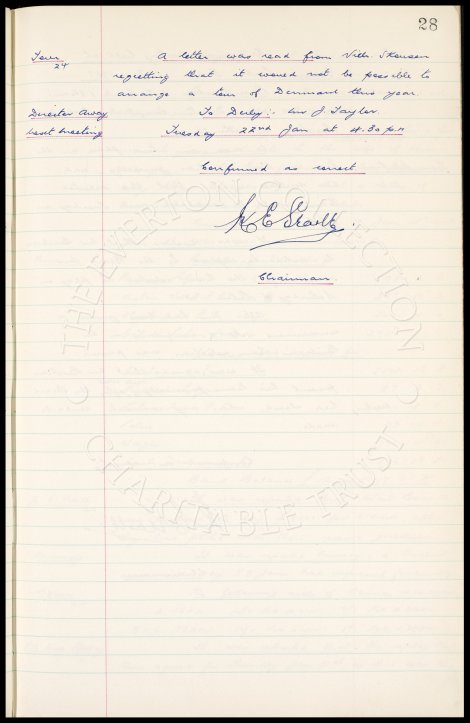 28
Tour. A letter was read from Vilh. Skousen
24 regretting that it would not be possible to
arrange a tour of Denmark this year.
Director Away. To Derby:- Mr J Taylor.
Next meeting Tuesday 22nd Jan at 4.30 p.m
Confirmed as correct
Chairman
THE EVERTON COLLECTION
CHARITABLE TRUST